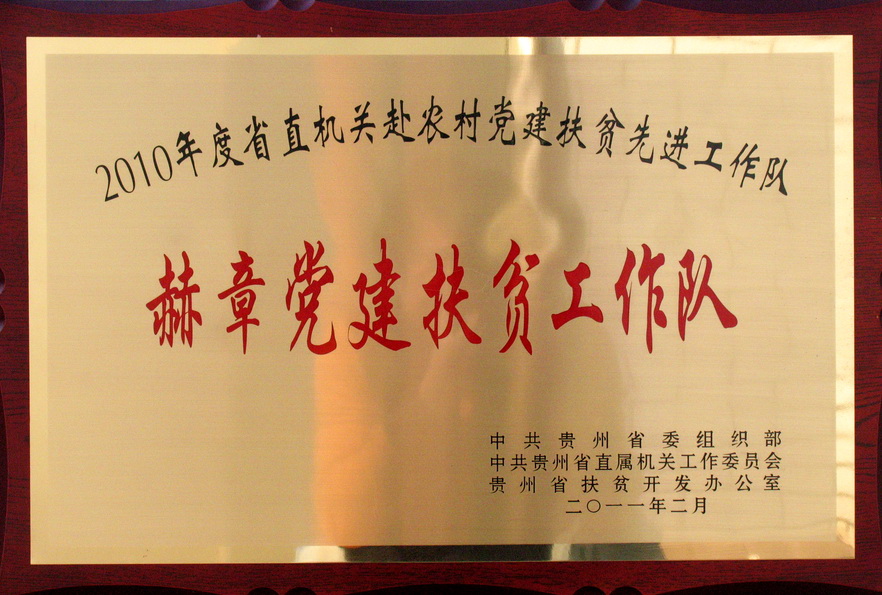 2010年度省直机关赴农村党建扶贫先进工作队
赫章党建扶贫工作队
中共贵州省委组织部
中共贵州省直属机关工作委员会
贵州省扶贫开发办公室
二〇一一年二月